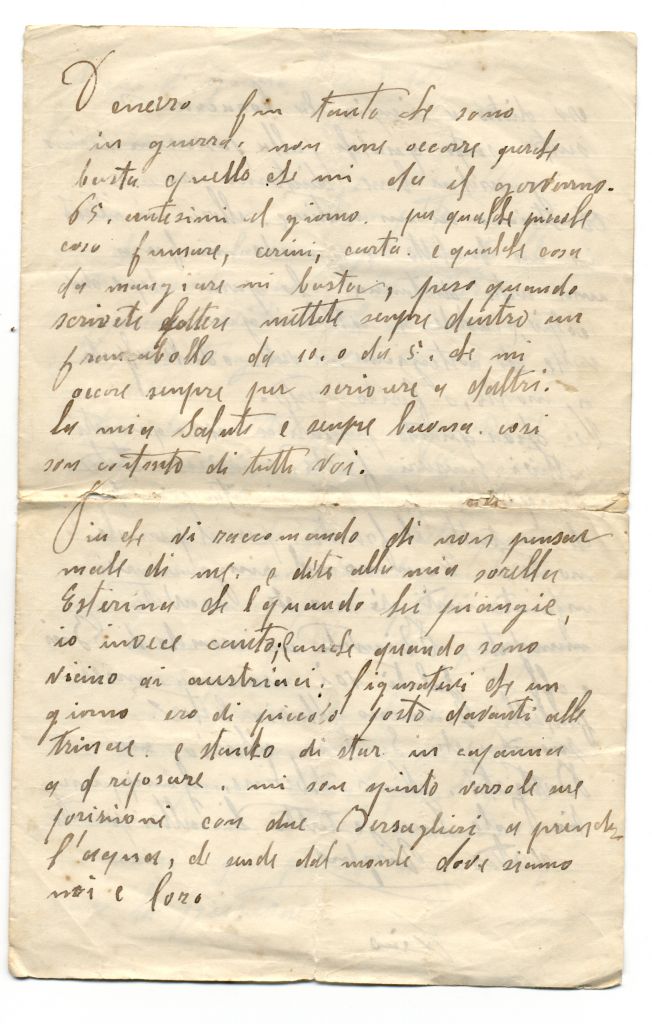 Denerro fin tanto che sono
in guerra. non me occorre perche
basta quello che mi da il governo.
65. centesimi il giorno. per qualche piccole
cose fumare, cerini, carta. e qualche cosa
da mangiare mi basta, pero quando
scrivete lettere mettete sempre dentro un
francobollo da 10. o da 5. che mi
occore sempre per scrivere a daltri.
la mia Salute e sempre buona. cosi
son contento di tutti voi.
Piu che vi raccomando di non pensar
male di me. e dite alla mia sorella
Esterina che quando lei piangie,
io invece canto; anche quando sono
vicino ai austriaci. figuratevi che un
giorno ero di piccolo posto davanti alle
trincee. e stanco di star in capanna
a riposare. mi son spinto verso le sue
posizioni con due Bersaglieri a prender
l'aqua, che sende dal monte dove siamo
noi e loro